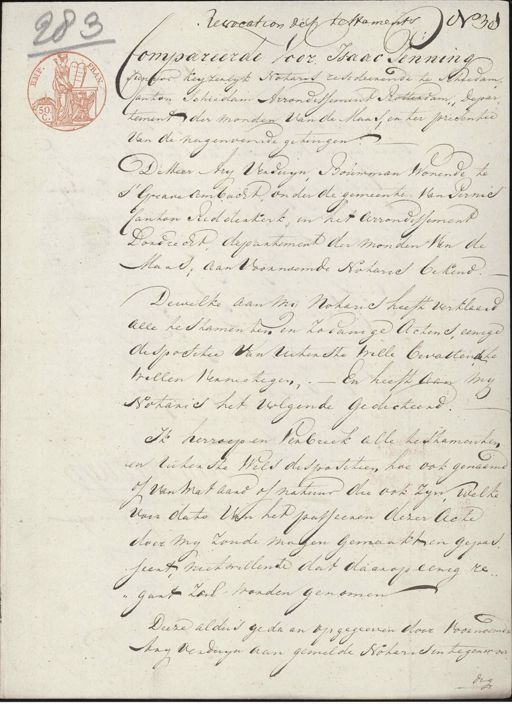 283
Revocation des testaments N° 38
EMP. FRAN.
50 C.
Compareerde voor Isaac Penning
Keyzerlyk Notaris resideerende te Schiedam,
Canton Schiedam Arrondissement Rotterdam, depar-
tement der monden Van de Maas, en ter presentie
Van de nagenoemde getuigen.
De Heer Ary Verduyn, Bouwman Wonende te
S'Gravenambacht, onder de gemeente Van Pernis
Canton Ridderkerk, in het Arrondissement
Dordrecht, departement der monden Van de
Maas, aan Voornoemde Notaris bekend.
Dewelke aan my Notaris heeft verklaard
alle testamenten en zodanige Actens, eenige
dispositie Van Uiterste Wille bevattende, te
willen Vernietigen, — En heeft aan My
Notaris het Volgende gedicteerd.
Ik herroep en Verbreek alle testamenten
en Uiterste Wils dispositien, hoe ook genaamd
of Van Wat aard of natuur die ook zyn, welke
voor dato Van het passeeren dezer Acte
door my zoude mogen gemaakt en gepas-
seert, niet willende dat daarop eenig re-
gart zal worden genomen
Deeze aldus gedaan opgegeven door Voornoemde
Ary Verduyn aan gemelde Notaris in tegenwoor
dig